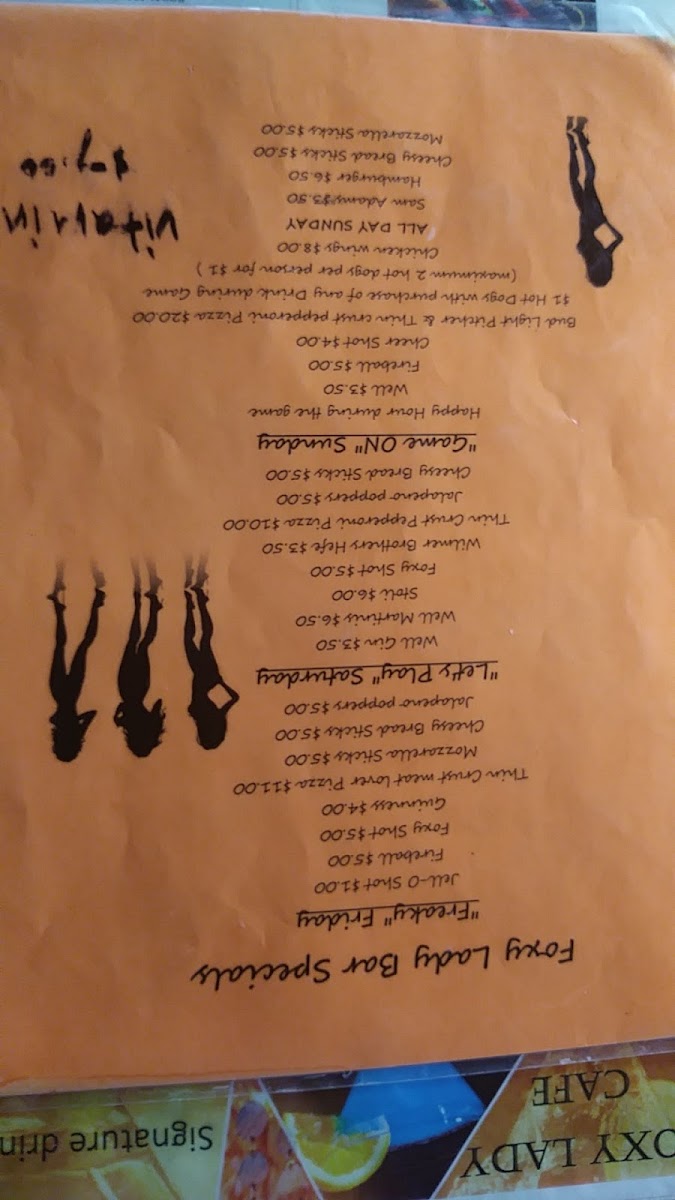 OXY LADY
CAFE
Signature drin
Foxy Lady Bar Specials
"Freaky" Friday
Jell-O Shot $1.00
Fireball $5.00
Foxy Shot $5.00
Guinness $4.00
Thin Crust meat lover Pizza $11.00
Mozzarella Sticks $5.00
Cheesy Bread Sticks $5.00
Jalapeno poppers $5.00
"Let's Play" Saturday
Well Gin $3.50
Well Martinis $6.50
Stoli $6.00
Foxy Shot $5.00
Wilmer Brothers Hefe $3.50
Thin Crust Pepperoni Pizza $10.00
Jalapeno poppers $5.00
Cheesy Bread Sticks $5.00
"Game ON" Sunday
Happy Hour during the game
Well $3.50
Fireball $5.00
Cheer Shot $4.00
Bud Light Pitcher & Thin crust pepperoni Pizza $20.00
$1 Hot Dogs with purchase of any Drink during Game
(maximum 2 hot dogs per person for $1 )
Chicken wings $8.00
ALL DAY SUNDAY
Sam Adams $3.50
Hamburger $6.50
Cheesy Bread Sticks $5.00
Mozzarella Sticks $5.00